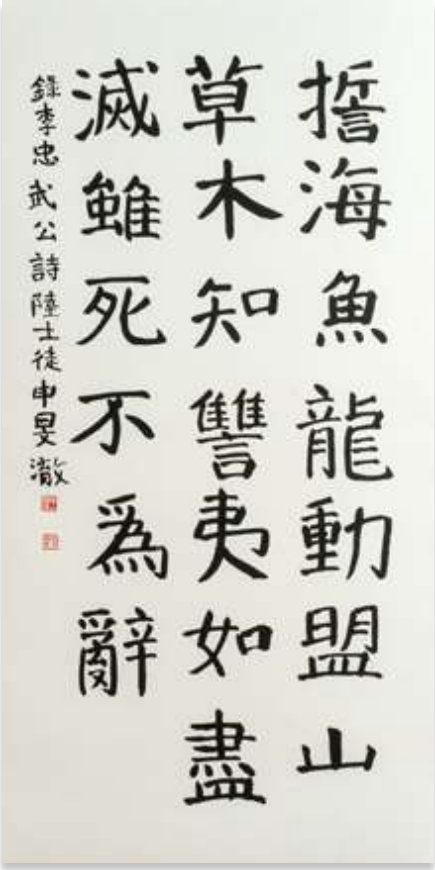 誓海魚龍動盟山
草木知讐夷如盡
滅雖死不爲辭
錄李忠武公詩陸士徒申旻澈